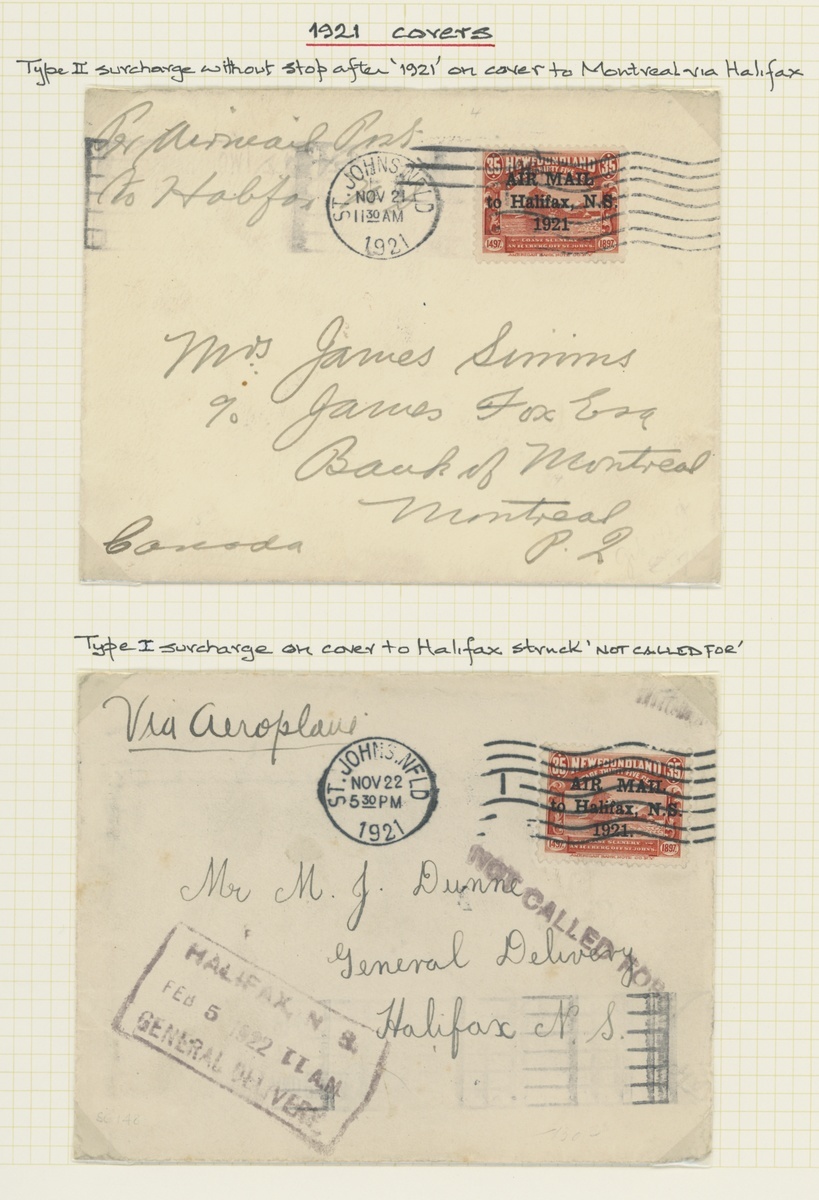 1921 covers
Type II surcharge without stop after '1921' on cover to Montreal via Halifax
Per Airmail Post
to Halifax
ST. JOHN'S, NFLD
NOV 21
11 30 AM
1921
35 NEWFOUNDLAND 35
AIR MAIL
to Halifax, N.S.
1921
1497 1897
Mrs James Simms
c/o James Fox Esq
Bank of Montreal
Montreal
Canada P. Q
Type I surcharge on cover to Halifax struck 'NOT CALLED FOR'
Via Aeroplane
ST. JOHN'S, NFLD
NOV 22
5 30 PM
1921
35 NEWFOUNDLAND 35
AIR MAIL
to Halifax, N.S.
1921.
1497 1897
NOT CALLED FOR
Mr M. J. Dunne
General Delivery
Halifax N. S.
HALIFAX, N. S.
FEB 5 1922 11 AM
GENERAL DELIVERY